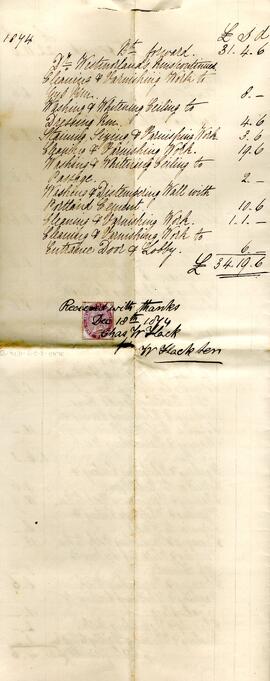 1874 £ s d
Bt forward. 31. 4. 6
Dr Westmorlands
Cleaning & Varnishing Work to
8. -
Washing & Whitening Ceiling to
4. 6
Staining, Sizing & Varnishing Work. 3. 6
& Varnishing Work. 19. 6
Washing & Whitening Ceiling to
Passage. 2. -
Washing & Distempering Wall with
Portland Cement. 10. 6
Cleaning & Varnishing Work. 1. 1. -
Cleaning & Varnishing Work to
Entrance Door & Lobby. 6 -
£ 34. 19. 6
Received with thanks
Dec 18th 1874
Chas W Flack
for W Flack Sen